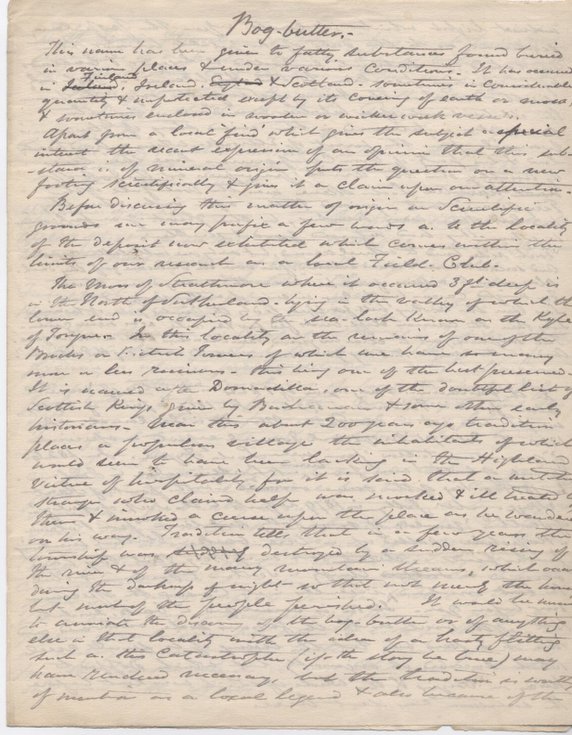 Bog-butter.-
This name has been given to fatty substances found buried
in various places & under various conditions. It has occurred
in Iceland, Finland, Ireland, England & Scotland, sometimes in considerable
quantity & unprotected except by its covering of earth or moss,
& sometimes enclosed in wooden or wicker work vessels.
Apart from a local find which gives the subject a special
interest the recent expression of an opinion that this sub-
stance is of mineral origin puts the question on a new
footing scientifically & gives it a claim upon our attention.
Before discussing this matter of origin on Scientific
grounds we may prefix a few words as to the locality
of the deposit now exhibited which comes within the
limits of our research as a local Field-Club.
The Moss of Strathmore where it occurred 3 ft deep is
in the North of Sutherland lying in the valley of which the
lower end is occupied by the sea-loch known as the Kyle
of Tongue. In this locality are the remains of one of the
Brochs or Pictish Towers of which we have so many
more or less ruinous - this being one of the best preserved.
It is named after Dornadilla, one of the doubtful list of
Scottish Kings given by Buchanan & some other early
historians. Near this about 200 years ago tradition
places a populous village the inhabitants of which
would seem to have been lacking in the Highland
virtue of hospitality for it is said that a
stranger who claimed help was mocked & ill treated by
them & invoked a curse upon the place as he wandered
on his way. Tradition tells that in a few years the
township was destroyed by a sudden rising of
the river & of the many mountain streams, which occurred
during the darkness of night so that not merely the houses
but most of the people perished. It would be
to associate the discovery of the bog-butter or of anything
else in that locality with the idea of a hasty flitting
such as this Catastrophe (if the story be true) may
have rendered necessary, but the tradition is worthy
of mention as a local legend & also because of the